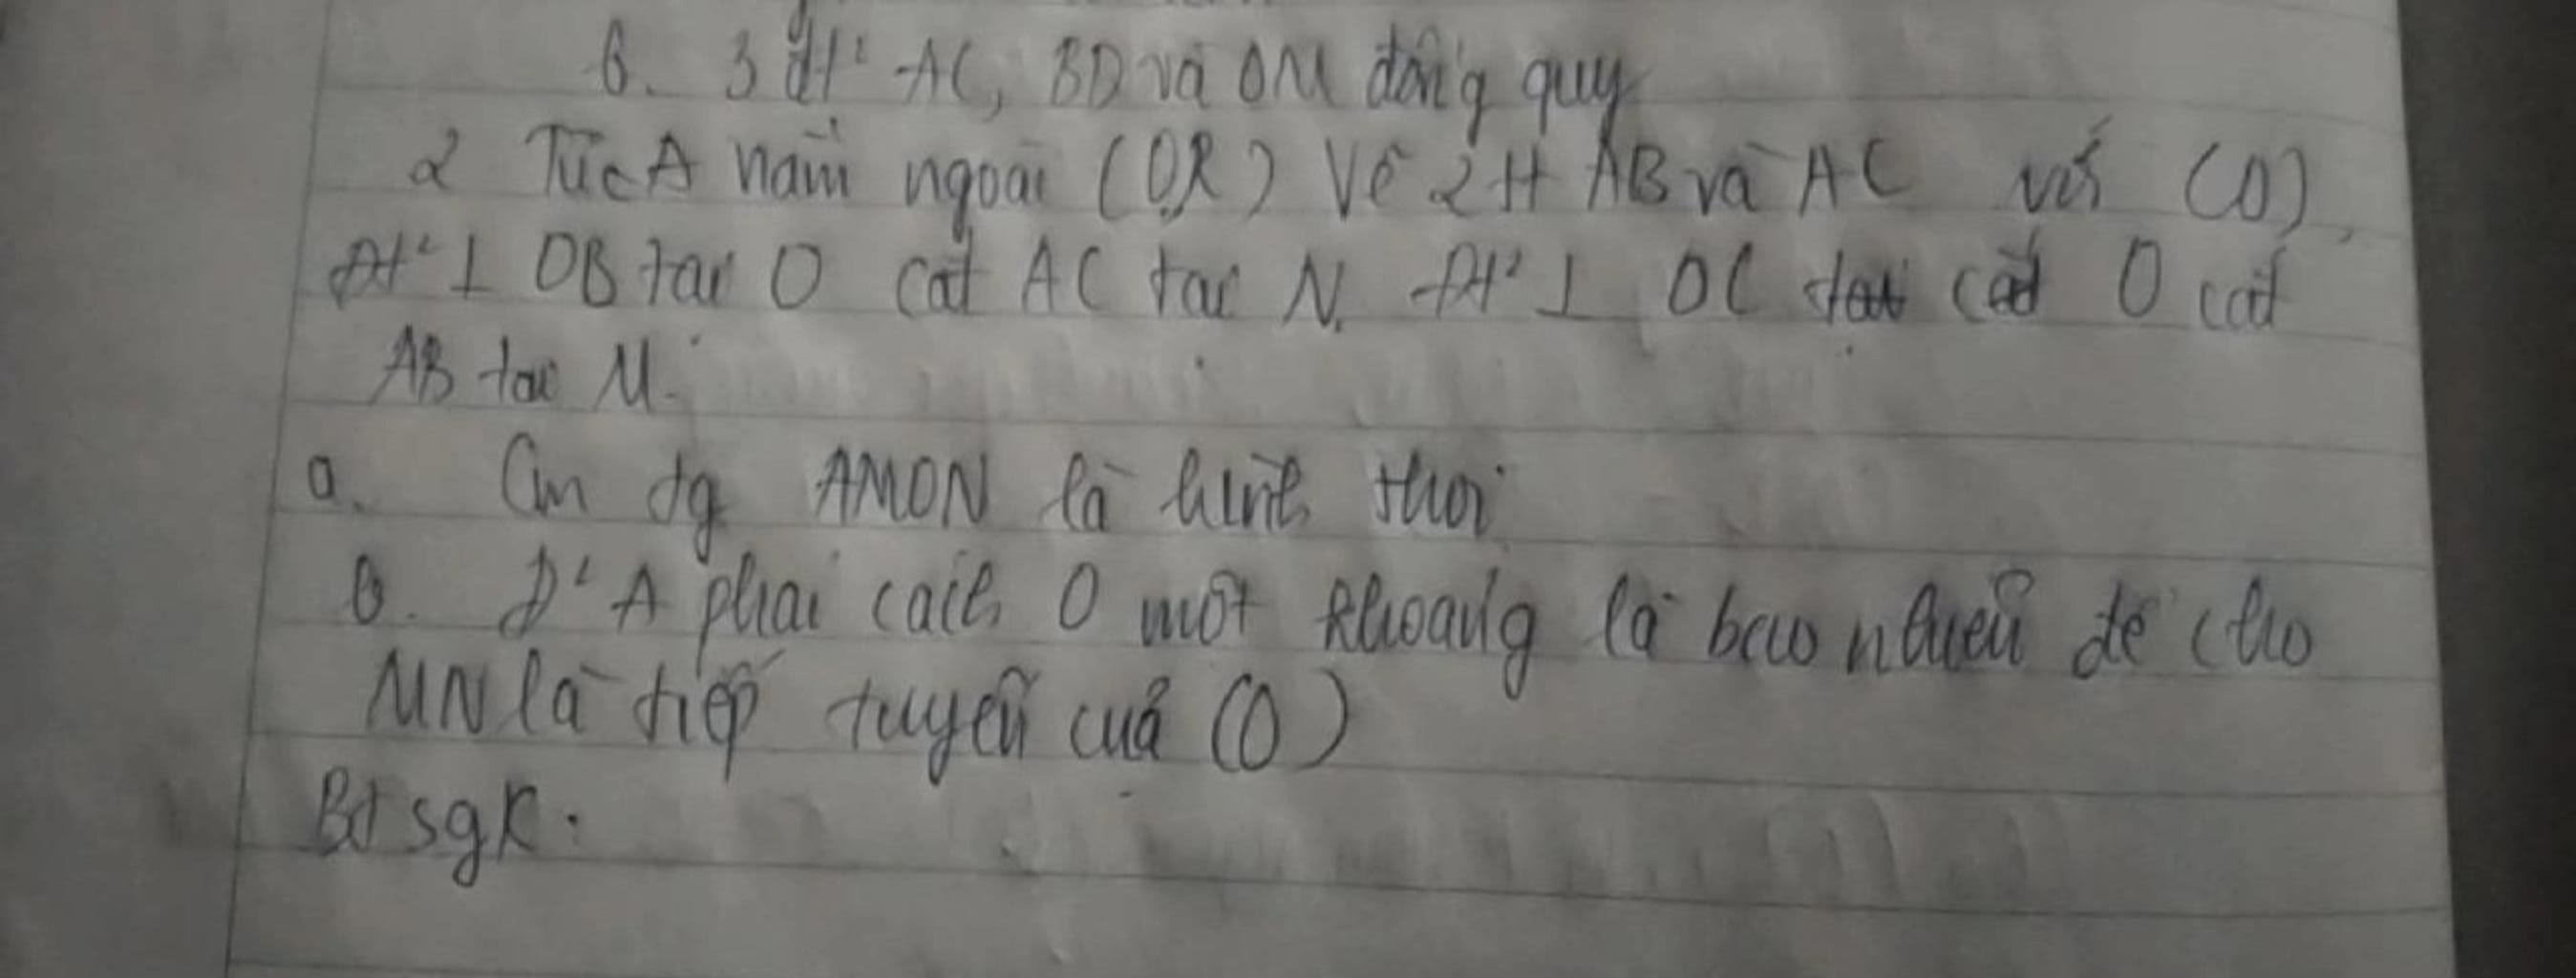 b. 3 đt' AC, BD và OM đồng quy
2 Từ A nằm ngoài (O,R) Vẽ 2 tt AB và AC với (O),
Đt' ⊥ OB tại O cắt AC tại N. Đt' ⊥ OC cắt O cắt
AB tại M.
a. Cm tg AMON là hình thoi
b. Đ' A phải cách O một khoảng là bao nhiêu để cho
MN là tiếp tuyến của (O)
Bt sgk.